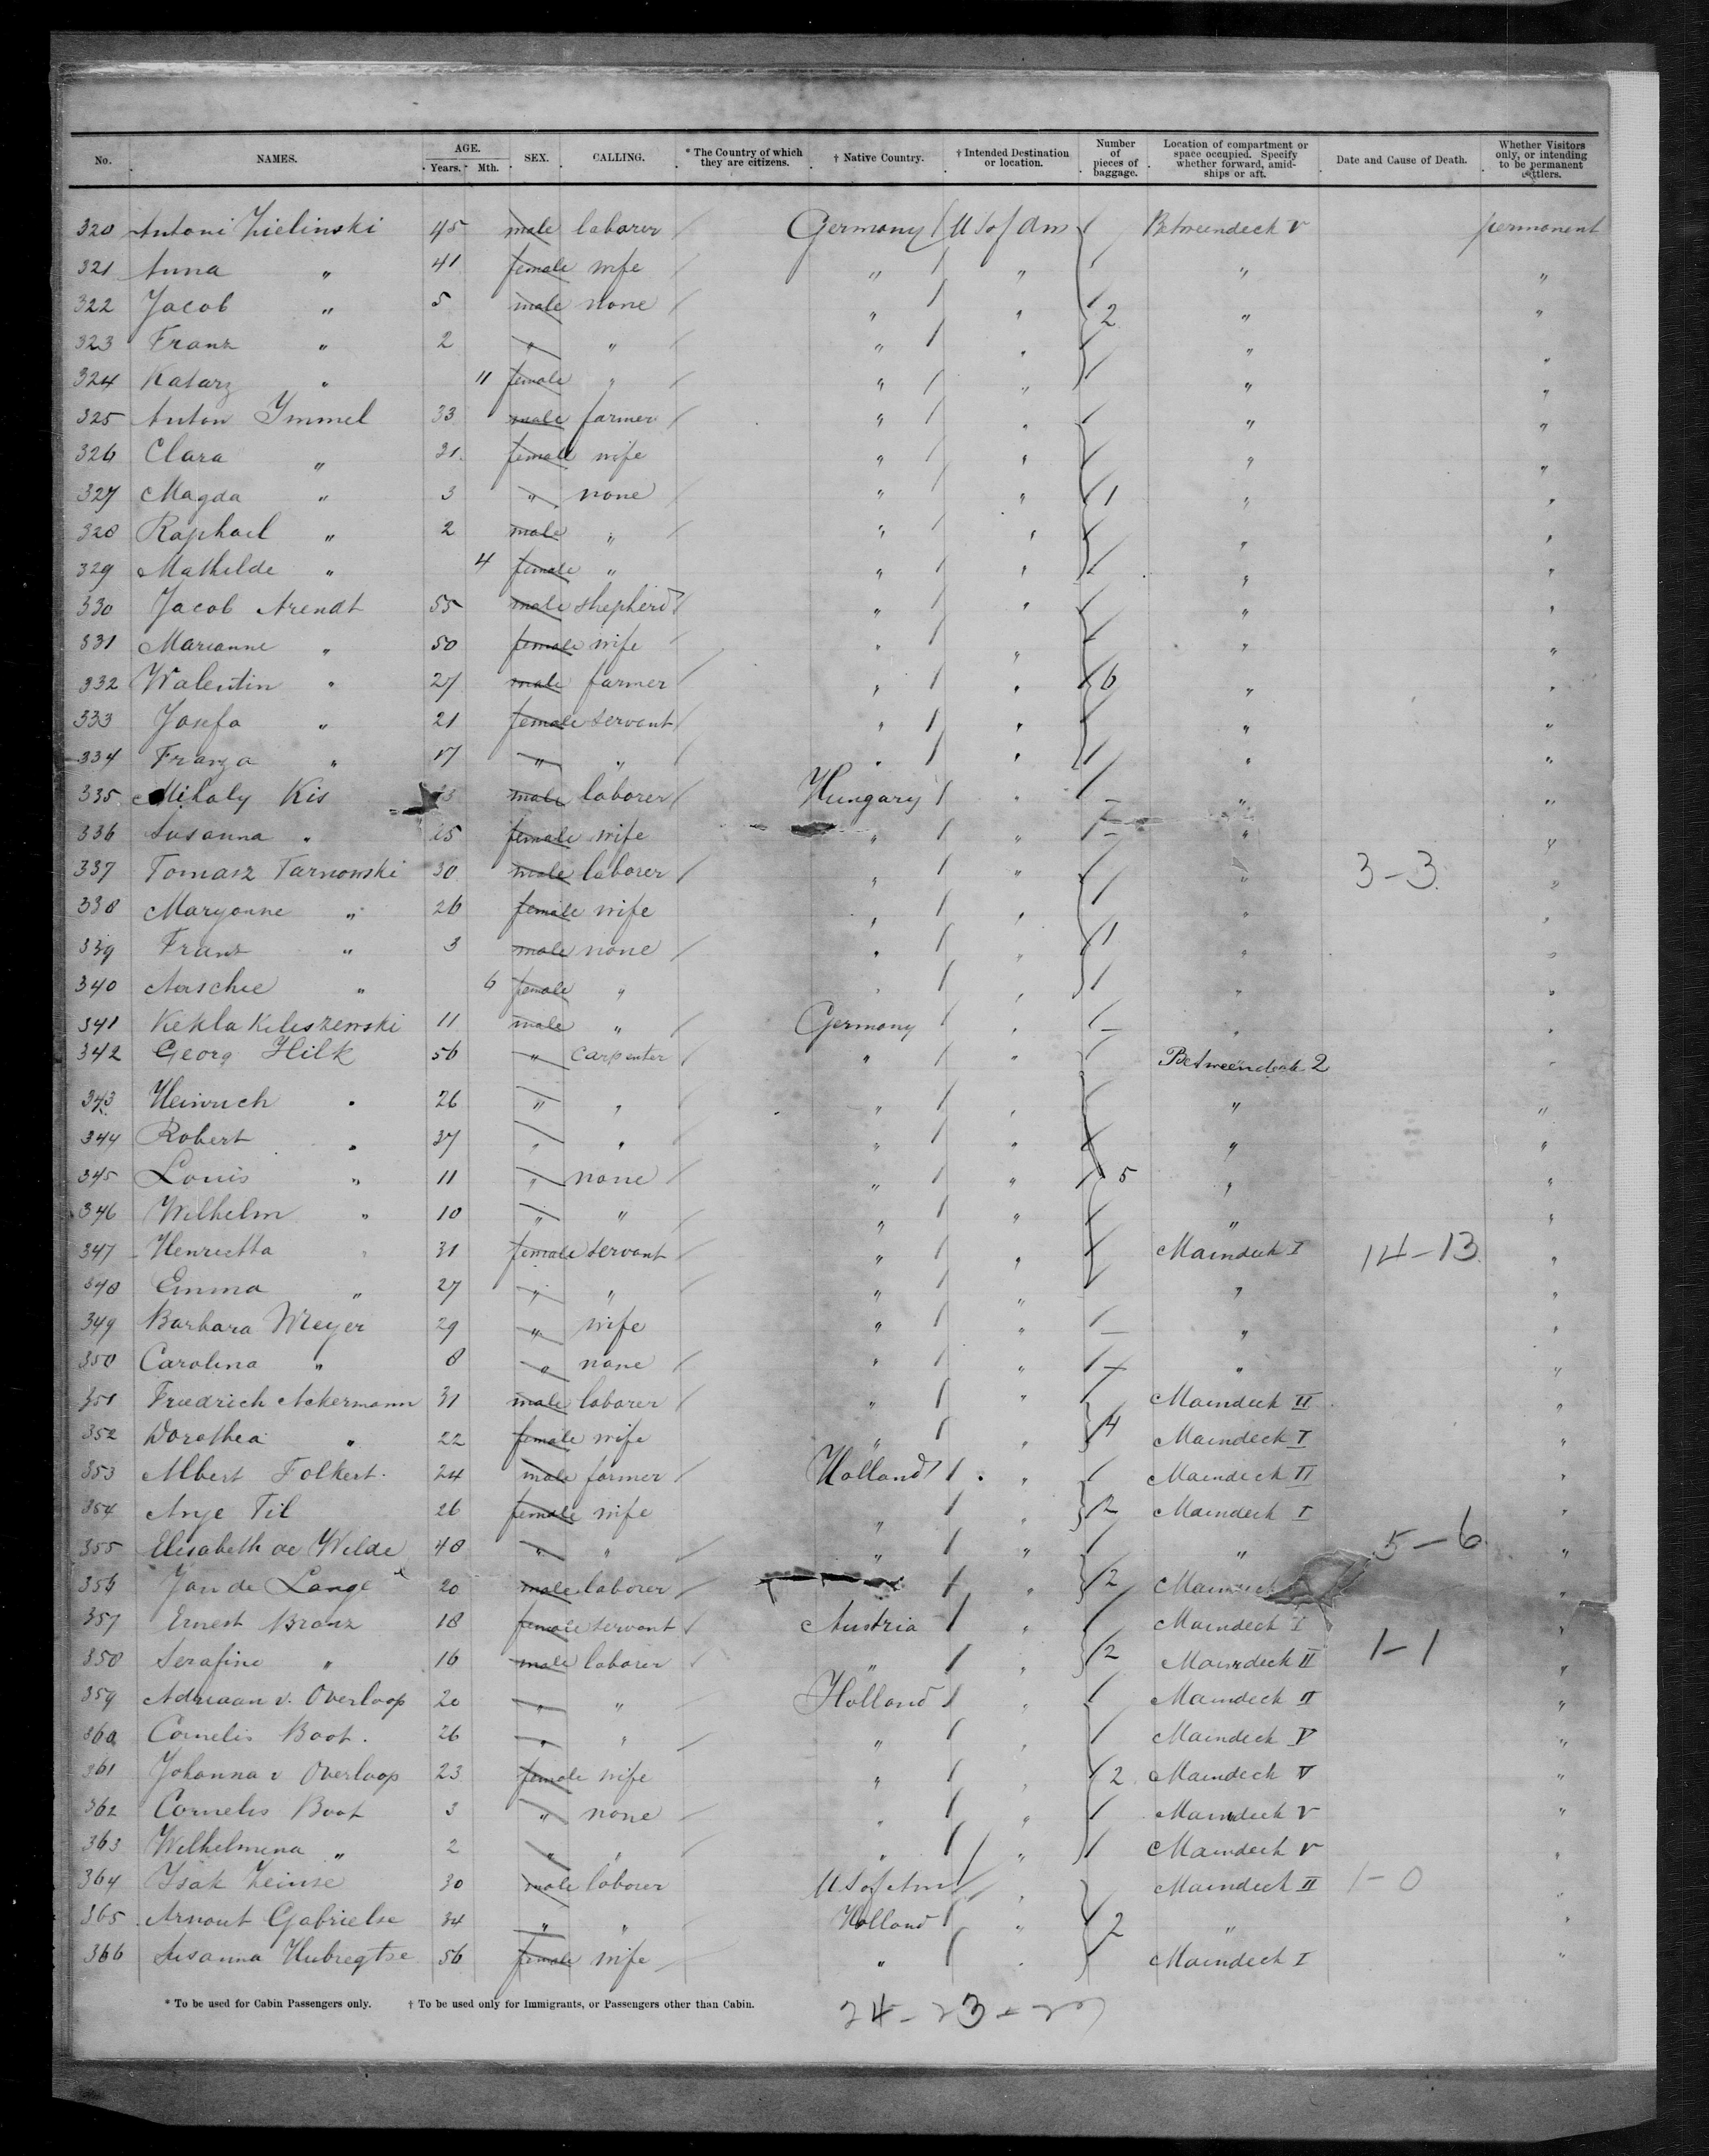 No. NAMES. AGE. Years. Mth. SEX. CALLING. * The Country of which they are citizens. † Native Country. † Intended Destination or location. Number of pieces of baggage. Location of compartment or space occupied. Specify whether forward, amidships or aft. Date and Cause of Death. Whether Visitors only, or intending to be permanent settlers.
320 Antoni Zielinski 45 male laborer Germany U S of Am Betweendeck V permanent
321 Anna " 41 female wife " " " "
322 Jacob " 5 male none " " 2 " "
323 Franz " 2 " " " " " "
324 Katarz " 11 female " " " " "
325 Anton Immel 33 male farmer " " " "
326 Clara " 31 female wife " " " "
327 Magda " 3 " none " " 1 " "
328 Raphael " 2 male " " " " "
329 Mathilde " 4 female " " " " "
330 Jacob Arendt 55 male shepherd " " " "
331 Marianne " 50 female wife " " " "
332 Walentin " 27 male farmer " " 6 " "
333 Josefa " 21 female servant " " " "
334 Franza " 17 " " " " " "
335 Mihaly Kis male laborer Hungary " - " "
336 Susanna " 25 female wife " " - " "
337 Tomasz Tarnowski 30 male laborer " " " 3-3 "
338 Maryanne " 26 female wife " " " "
339 Franz " 3 male none " " 1 " "
340 " 6 female " " " " "
341 Kekla 11 male " Germany " - " "
342 Georg Hilk 56 " carpenter " " Betweendeck 2 "
343 Heinrich " 26 " " " " " "
344 Robert " 37 " " " " " "
345 Louis " 11 " none " " 5 " "
346 Wilhelm " 10 " " " " " "
347 Henrietta " 31 female servant " " Maindeck I 14-13 "
348 Emma " 27 " " " " " "
349 Barbara Meyer 29 " wife " " - " "
350 Carolina " 8 " none " " - " "
351 Friedrich Ackermann 31 male laborer " " Maindeck II "
352 Dorothea " 22 female wife " " 4 Maindeck I "
353 Albert Folkert 24 male farmer Holland " Maindeck II "
354 Anje Til 26 female wife " " 2 Maindeck I "
355 Elisabeth de Wilde 48 " " " " " 5-6 "
356 Jan de Lange 20 male laborer " 2 "
357 Ernest Branz 18 female servant Austria " Maindeck I "
358 Serafine " 16 male laborer " " 2 Maindeck II 1-1 "
359 Adriaan v. Overloop 20 " " Holland " Maindeck II "
360 Cornelis Boot. 26 " " " " Maindeck V "
361 Johanna v Overloop 23 female wife " " 2 Maindeck V "
362 Cornelis Boot 3 " none " " Maindeck V "
363 Wilhelmena " 2 " " " " Maindeck V "
364 Isak 30 male laborer U S of Am " Maindeck II 1-0 "
365 Arnout Gabrielse 34 " " Holland " 2 " "
366 Susanna Hubregtse 56 female wife " " Maindeck I "
* To be used for Cabin Passengers only. † To be used only for Immigrants, or Passengers other than Cabin.
24-23-